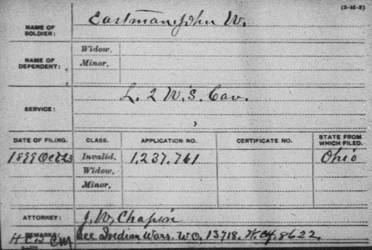 (3-15-5)
NAME OF SOLDIER: Eastman, John W.
NAME OF DEPENDENT:
Widow.
Minor.
SERVICE: L. 2 U.S. Cav.
DATE OF FILING. CLASS. APPLICATION NO. CERTIFICATE NO. STATE FROM WHICH FILED.
1899 Oct 23 Invalid. 1,237,761 Ohio
Widow.
Minor.
ATTORNEY: J. W. Chapin
REMARKS: See Indian Wars. W.O. 13718. 8622.